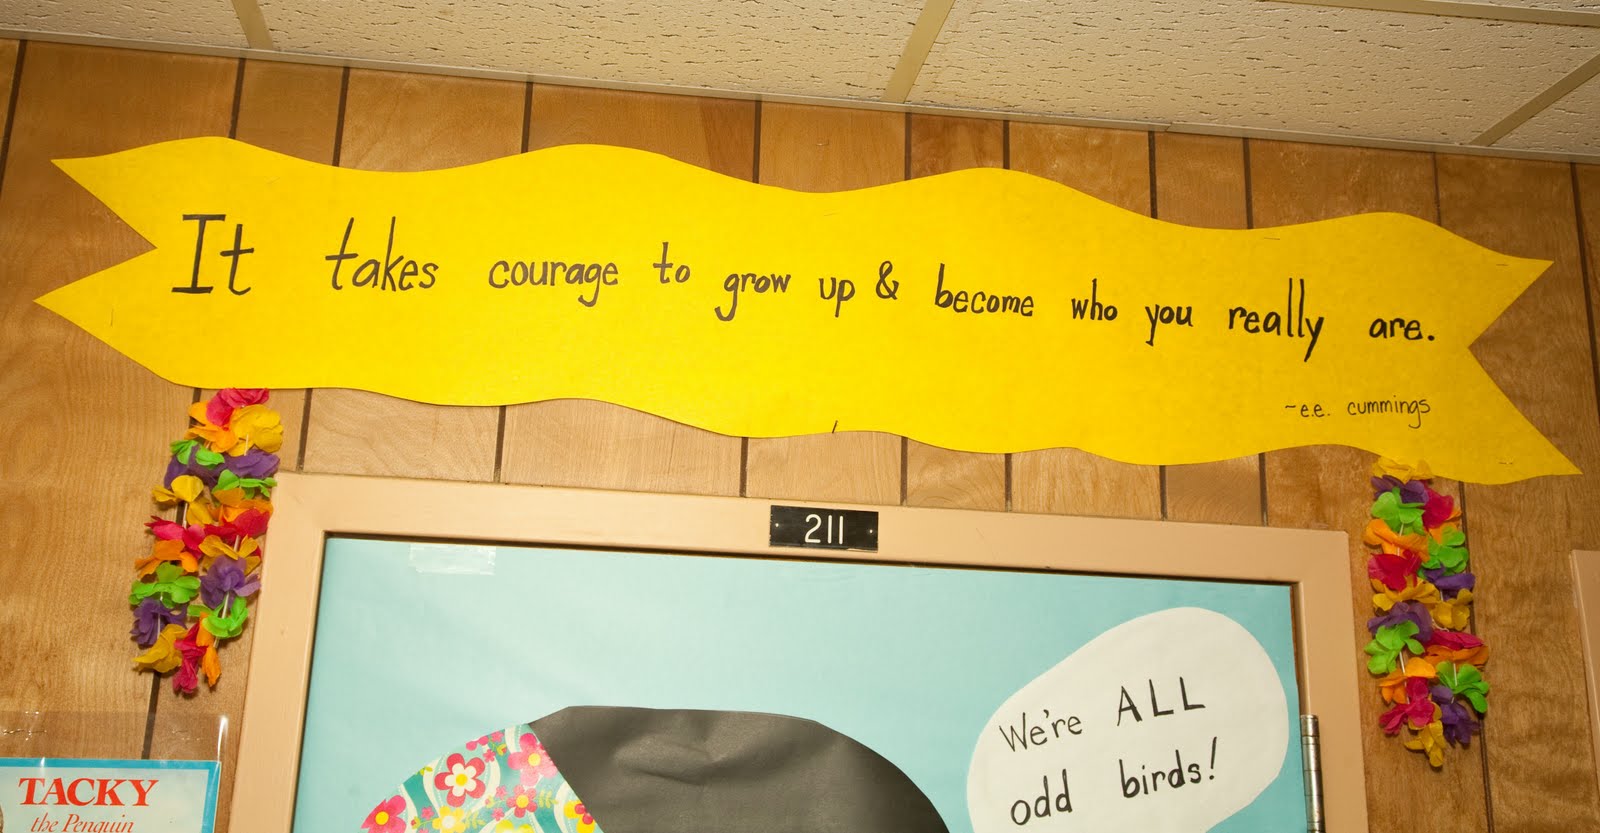 It takes courage to grow up & become who you really are.
~e.e. cummings
211
We're ALL
odd birds!
TACKY
the Penguin